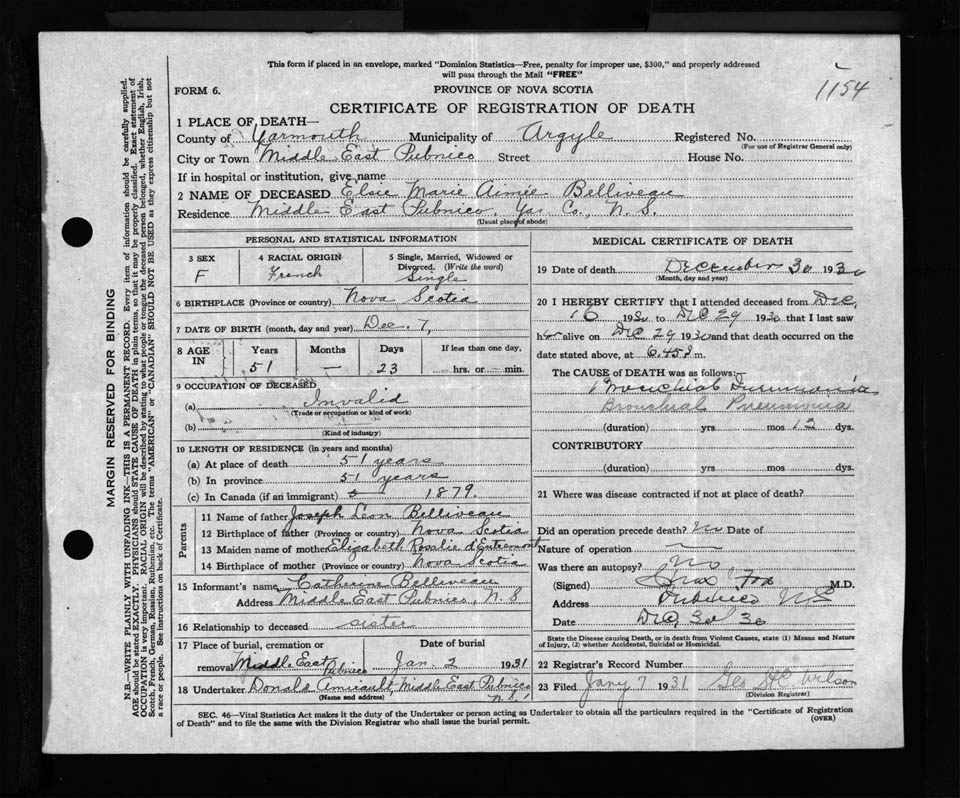 This form if placed in an envelope, marked "Dominion Statistics—Free, penalty for improper use, $300," and properly addressed
will pass through the Mail "FREE"
1154
FORM 6.
PROVINCE OF NOVA SCOTIA
CERTIFICATE OF REGISTRATION OF DEATH
1 PLACE OF DEATH—
County of Yarmouth Municipality of Argyle Registered No.
(For use of Registrar General only)
City or Town Middle East Pubnico Street House No.
If in hospital or institution, give name
2 NAME OF DECEASED Elsie Marie Aimée Belliveau
Residence Middle East Pubnico, Yar. Co., N. S.
(Usual place of abode)
PERSONAL AND STATISTICAL INFORMATION
3 SEX 4 RACIAL ORIGIN 5 Single, Married, Widowed or
Divorced. (Write the word)
F French Single
6 BIRTHPLACE (Province or country) Nova Scotia
7 DATE OF BIRTH (month, day and year) Dec. 7,
8 AGE IN Years Months Days If less than one day,
51 — 23 hrs. or min.
9 OCCUPATION OF DECEASED
(a) Invalid
(Trade or occupation or kind of work)
(b)
(Kind of industry)
10 LENGTH OF RESIDENCE (in years and months)
(a) At place of death 51 years
(b) In province 51 years
(c) In Canada (if an immigrant) 1879.
Parents
11 Name of father Joseph Leon Belliveau
12 Birthplace of father (Province or country) Nova Scotia
13 Maiden name of mother Elizabeth Rosalie d'Entremont
14 Birthplace of mother (Province or country) Nova Scotia
15 Informant's name Catherine Belliveau
Address Middle East Pubnico, N. S
16 Relationship to deceased sister
17 Place of burial, cremation or Date of burial
removal Middle East Pubnico Jan. 2 1931
18 Undertaker Donald Amirault, Middle East Pubnico
(Name and address) N. S.
MEDICAL CERTIFICATE OF DEATH
19 Date of death December 30 1930
(Month, day and year)
20 I HEREBY CERTIFY that I attended deceased from Dec.
16 1930 to Dec 29 1930 that I last saw
h alive on Dec 29 1930 and that death occurred on the
date stated above, at 6.45 m.
The CAUSE OF DEATH was as follows:
Bronchial Pneumonia
Bronchial Pneumonia
(duration) yrs mos 12 dys.
CONTRIBUTORY
(duration) yrs. mos dys.
21 Where was disease contracted if not at place of death?
Did an operation precede death? No Date of
Nature of operation —
Was there an autopsy? No
(Signed) Fox M.D.
Address Pubnico NS
Date Dec. 30 30
State the Disease causing Death, or in death from Violent Causes, state (1) Means and Nature
of Injury, (2) whether Accidental, Suicidal or Homicidal.
22 Registrar's Record Number
23 Filed Jany 7 1931 Geo Wilson
(Division Registrar)
SEC. 46—Vital Statistics Act makes it the duty of the Undertaker or person acting as Undertaker to obtain all the particulars required in the "Certificate of Registration
of Death" and to file the same with the Division Registrar who shall issue the burial permit. (OVER)
MARGIN RESERVED FOR BINDING
N.B.—WRITE PLAINLY WITH UNFADING INK—THIS IS A PERMANENT RECORD. Every item of information should be carefully supplied.
AGE should be stated EXACTLY. PHYSICIANS should STATE CAUSE OF DEATH in plain terms, so that it may be properly classified. Exact statement of
OCCUPATION is very important. RACIAL ORIGIN will be described by stating to what people or tongue the deceased person belonged, whether English, Irish,
Scotch, French, German, Russian, Ruthenian, etc. The terms "AMERICAN" or "CANADIAN" SHOULD NOT BE USED as they express citizenship but not
a race or people. See instructions on back of Certificate.